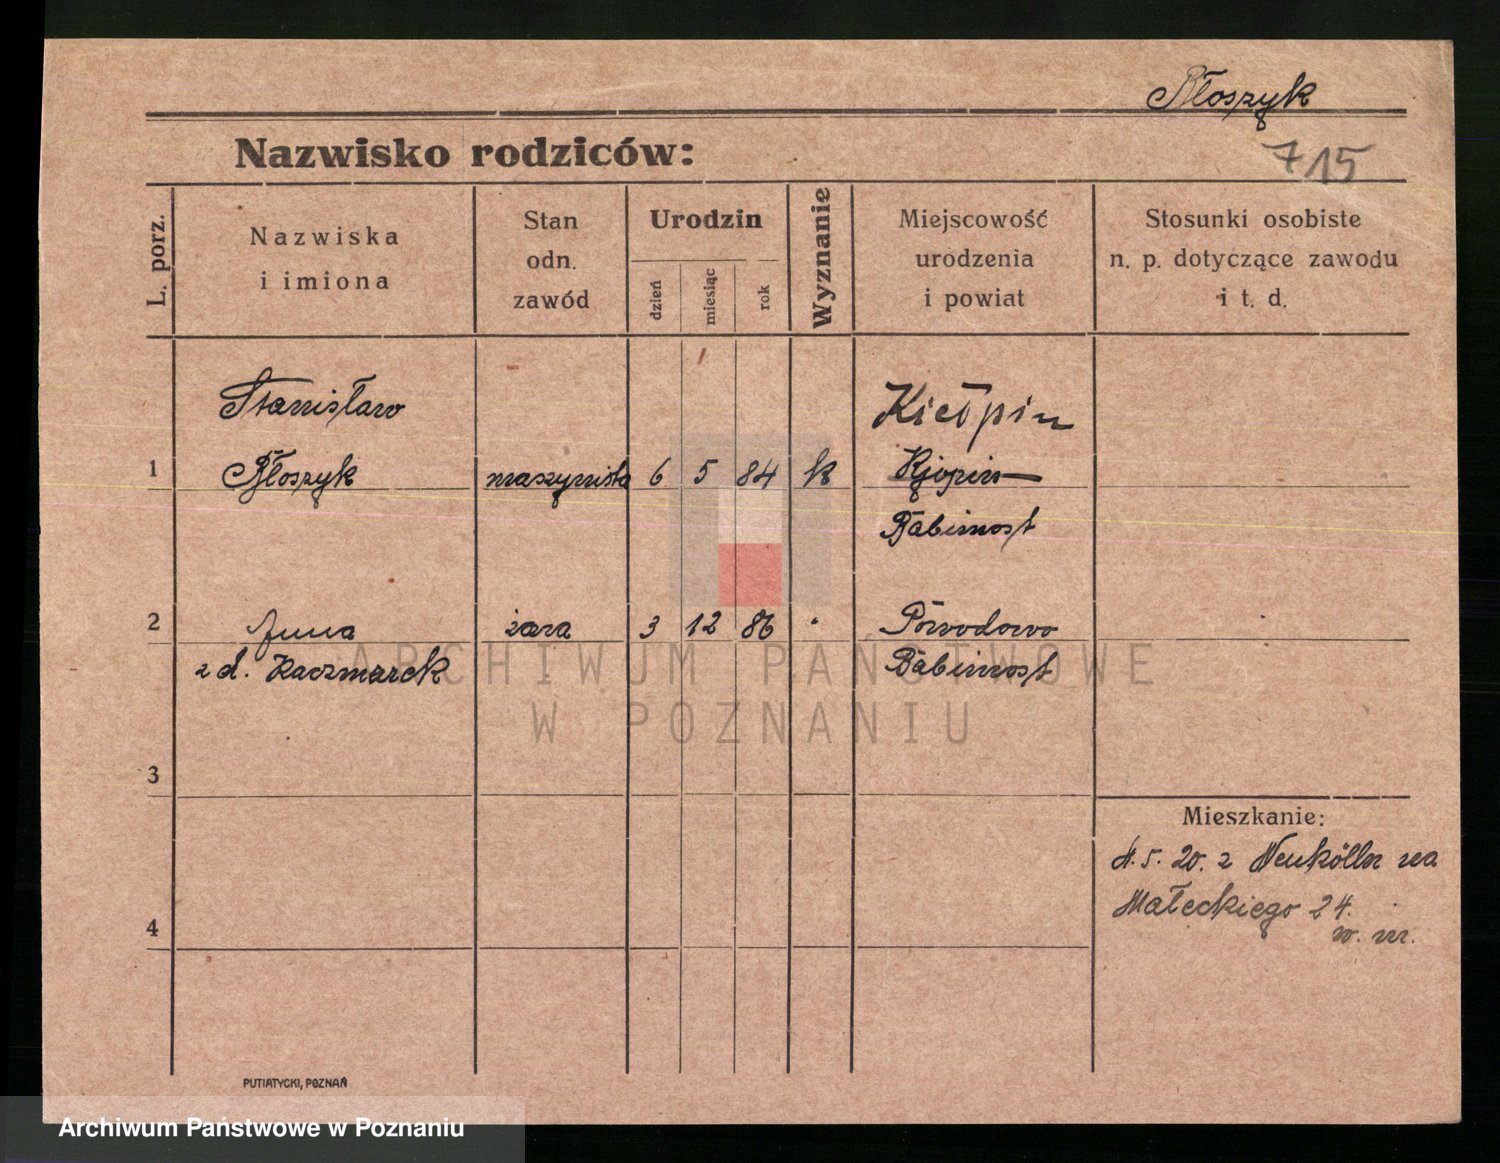 Błoszyk
715
Nazwisko rodziców:
L. porz.
Nazwiska
i imiona
Stan
odn.
zawód
Urodzin
dzień
miesiąc
rok
Wyznanie
Miejscowość
urodzenia
i powiat
Stosunki osobiste
n. p. dotyczące zawodu
i t. d.
Stanisław
Kiełpin
1 Błoszyk maszynista 6 5 84 k Kjopin
Babimost
2 Anna żona 3 12 86 " Powodowo
z d. Kaczmarek Babimost
ARCHIWUM PAŃSTWOWE
W POZNANIU
3
Mieszkanie:
5. 20. z Neukölln na
Małeckiego 24.
w. m.
4
PUTIATYCKI, POZNAŃ
Archiwum Państwowe w Poznaniu